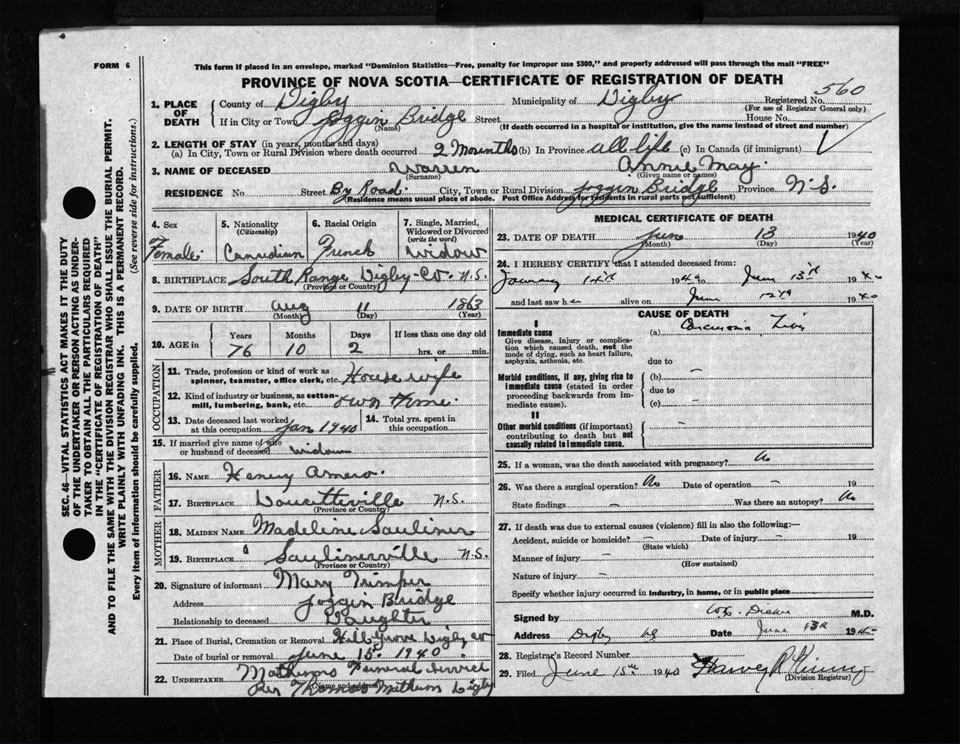 FORM 6
This form if placed in an envelope, marked "Dominion Statistics—Free, penalty for improper use $300," and properly addressed will pass through the mail "FREE"
PROVINCE OF NOVA SCOTIA—CERTIFICATE OF REGISTRATION OF DEATH
SEC. 46—VITAL STATISTICS ACT MAKES IT THE DUTY
OF THE UNDERTAKER OR PERSON ACTING AS UNDER-
TAKER TO OBTAIN ALL THE PARTICULARS REQUIRED
IN THE "CERTIFICATE OF REGISTRATION OF DEATH"
AND TO FILE THE SAME WITH THE DIVISION REGISTRAR WHO SHALL ISSUE THE BURIAL PERMIT.
WRITE PLAINLY WITH UNFADING INK. THIS IS A PERMANENT RECORD.
Every item of information should be carefully supplied. (See reverse side for instructions.)
1. PLACE OF DEATH County of Digby Municipality of Digby Registered No. 560
(For use of Registrar General only)
If in City or Town Joggin Bridge Street House No.
(Name) (If death occurred in a hospital or institution, give the name instead of street and number)
2. LENGTH OF STAY (in years, months and days)
(a) In City, Town or Rural Division where death occurred 2 Mounths (b) In Province all life (c) In Canada (if immigrant)
3. NAME OF DECEASED Warren Annie May.
(Surname) (Given name or names)
RESIDENCE No Street By Road. City, Town or Rural Division Joggin Bridge Province N.S.
(Residence means usual place of abode. Post Office Address for residents in rural parts not sufficient)
4. Sex Female
5. Nationality (Citizenship) Canadian
6. Racial Origin French
7. Single, Married, Widowed or Divorced (write the word) Widow
8. BIRTHPLACE South Range Digby Co. N.S.
(Province or Country)
9. DATE OF BIRTH Aug 11 1863
(Month) (Day) (Year)
10. AGE in Years Months Days If less than one day old
76 10 2 hrs. or min.
OCCUPATION
11. Trade, profession or kind of work as
spinner, teamster, office clerk, etc. House wife
12. Kind of industry or business, as cotton-
mill, lumbering, bank, etc. own home
13. Date deceased last worked at this occupation Jan 1940
14. Total yrs. spent in this occupation
15. If married give name of wife
or husband of deceased widow
FATHER
16. NAME Henry Amero
17. BIRTHPLACE Doucettville N.S.
(Province or Country)
MOTHER
18. MAIDEN NAME Madeline Sauliner
19. BIRTHPLACE Saulinerville N.S.
(Province or Country)
20. Signature of informant Mary Trimper
Address Joggin Bridge
Relationship to deceased Daughter
21. Place of Burial, Cremation or Removal Hill Grove Digby Co
Date of burial or removal June 15 1940.
22. UNDERTAKER Funeral Service
Per Thomas Digby
MEDICAL CERTIFICATE OF DEATH
23. DATE OF DEATH June 13 1940
(Month) (Day) (Year)
24. I HEREBY CERTIFY that I attended deceased from:
January 14th 1940 to June 13th 1940
and last saw her alive on June 12th 1940
CAUSE OF DEATH
I
Immediate cause (a) Carcinoma Liver
Give disease, injury or complica-
tion which caused death, not the
mode of dying, such as heart failure,
asphyxia, asthenia, etc.
due to
Morbid conditions, if any, giving rise to (b) –
immediate cause (stated in order due to
proceeding backwards from im-
mediate cause). (c) –
II
Other morbid conditions (if important)
contributing to death but not
causally related to immediate cause. –
25. If a woman, was the death associated with pregnancy? No
26. Was there a surgical operation? No Date of operation – 19
State findings – Was there an autopsy? No
27. If death was due to external causes (violence) fill in also the following:—
Accident, suicide or homicide? – Date of injury – 19
(State which)
Manner of injury –
(How sustained)
Nature of injury –
Specify whether injury occurred in industry, in home, or in public place
Signed by M.D.
Address Digby NS Date June 13th 1940
28. Registrar's Record Number
29. Filed June 15th 1940 Harvey R
(Division Registrar)